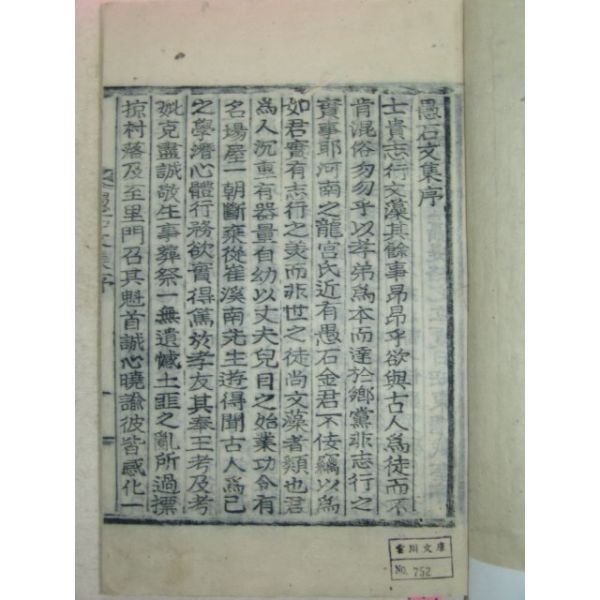 愚石文集序
士貴志行文藻其餘事昂昂乎欲與古人爲徒而不
肯混俗勿勿乎以孝弟爲本而達於鄕黨非志行之
實事耶河南之龍宮氏近有愚石金君不佞竊以爲
如君實有志行之美而非世之徒尚文藻者類也君
爲人沉重有器量自幼以丈夫兒目之始業功令有
名塲屋一朝斷棄從崔溪南先生遊得聞古人爲己
之學潛心體行務欲實得篤於孝友其奉王考及考
妣克盡誠敬生事葬祭一無遺憾土匪之亂所過摽
掠村落及至里門召其魁首誠心曉諭彼皆感化一
愚石文集序
雷川文庫
No. 752